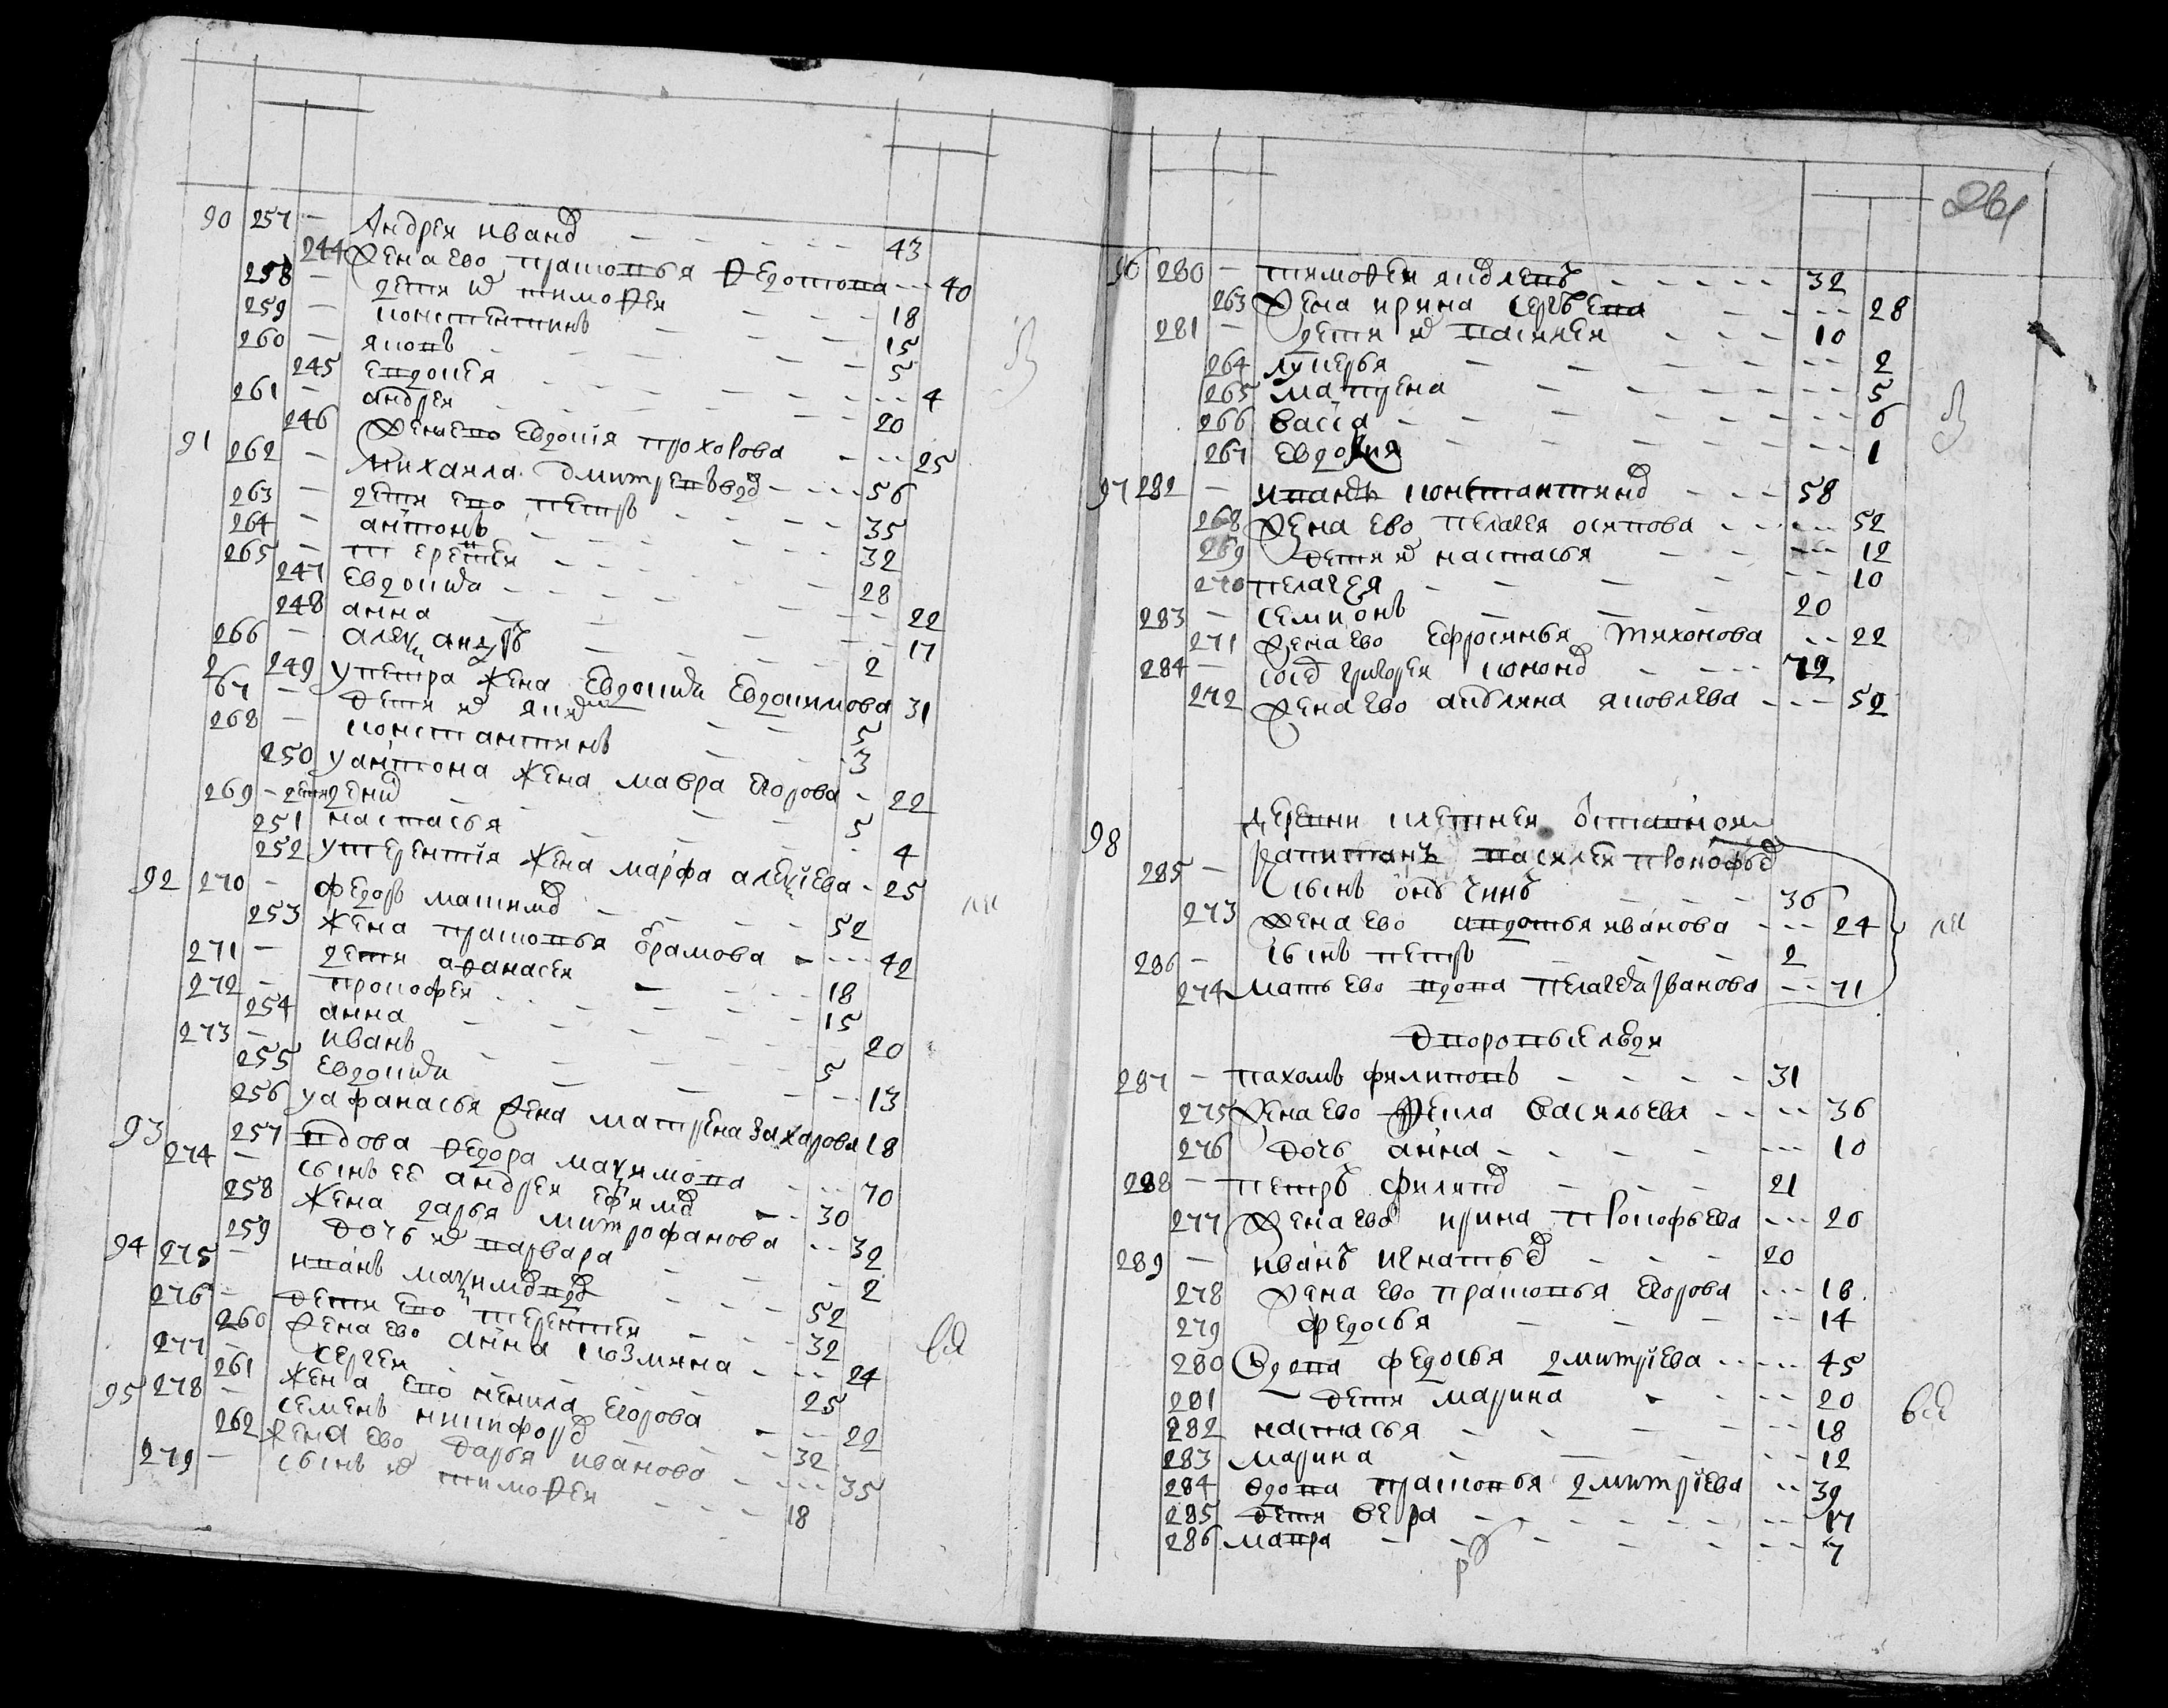 90 257 — Андреи иванъ — 43
244 Жена ево праскопья Федотопа — 40
258 — дети их тимофеи — 18
259 — констентинъ — 15
260 — якопъ — 5
245 епдокея — 4
261 — андреи — 20
246 Жена епо Евдокия прохорова — 25
91 262 — михаила дмитре — 56
263 — дети епо петръ — 35
264 — антонъ — 32
265 — терентеи — 28
247 Евдокия — 22
248 анна — 17
266 — александръ — 2
249 упетра жена Евдокия Евдокимова 31
267 — дети их — 5
268 — константинъ — 3
250 уантона жена мавра Егорова — 22
269 — дети — 5
251 настасья — 4
252 утерентия жена марфа алексиева — 25
92 270 — федоръ максимъ — 52
253 жена праскопья — 42
271 — дети афанасеи — 18
272 — прокофеи — 15
254 анна — 20
273 — иванъ — 5
255 Евдокия — 13
256 уафанасья жена матрена захарова 18
93 257 вдова Федора максимопа — 70
274 — сынъ ее андреи ефимъ — 30
258 жена дарья митрофанова — 32
259 дочь их парвара — 2
94 275 — ипанъ максим — 52
276 — дети епо терентеи — 32
260 жена ево анна козмина — 24
277 — сергеи — 25
261 жена епо ненила Егорова — 22
95 278 — семенъ никифоръ — 32
262 жена ево дарья иванова — 35
279 — сынъ их тимофеи — 18
261
96 280 — тимофеи — 32
263 Жена ирина сергеепа — 28
281 — дети их пасилеи — 10
264 лукерья — 2
265 матрена — 5
266 васса — 6
267 Евдокия — 1
97 282 — ипанъ константинъ — 58
268 Жена ево пелагея осипова — 52
269 дети их настасья — 12
270 пелагея — 10
283 — семионъ — 20
271 жена ево Ефросинья тихонова — 22
284 — григореи — 72
272 жена ево яковлева — 52
98 деревни
капитанъ пасилеи прокофьъ
285 — сынъ — 36
273 жена ево апдотья иванова — 24
286 — сынъ петръ — 2
274 мать ево вдопа пелагея иванова — 71
Дпоропые люди
287 — пахомъ филипопъ — 31
275 Жена ево Фекла васильева — 36
276 дочь анна — 10
288 — петръ филипъ — 21
277 Жена ево ирина прокофьева — 20
289 — иванъ игнатьъ — 20
278 жена ево праскопья Егорова — 18
279 федосья — 14
280 вдопа федосья дмитриева — 45
281 — дети марина — 20
282 настасья — 18
283 марина — 12
284 вдопа праскопья дмитриева — 39
285 дети вера — 17
286 мапра — 7